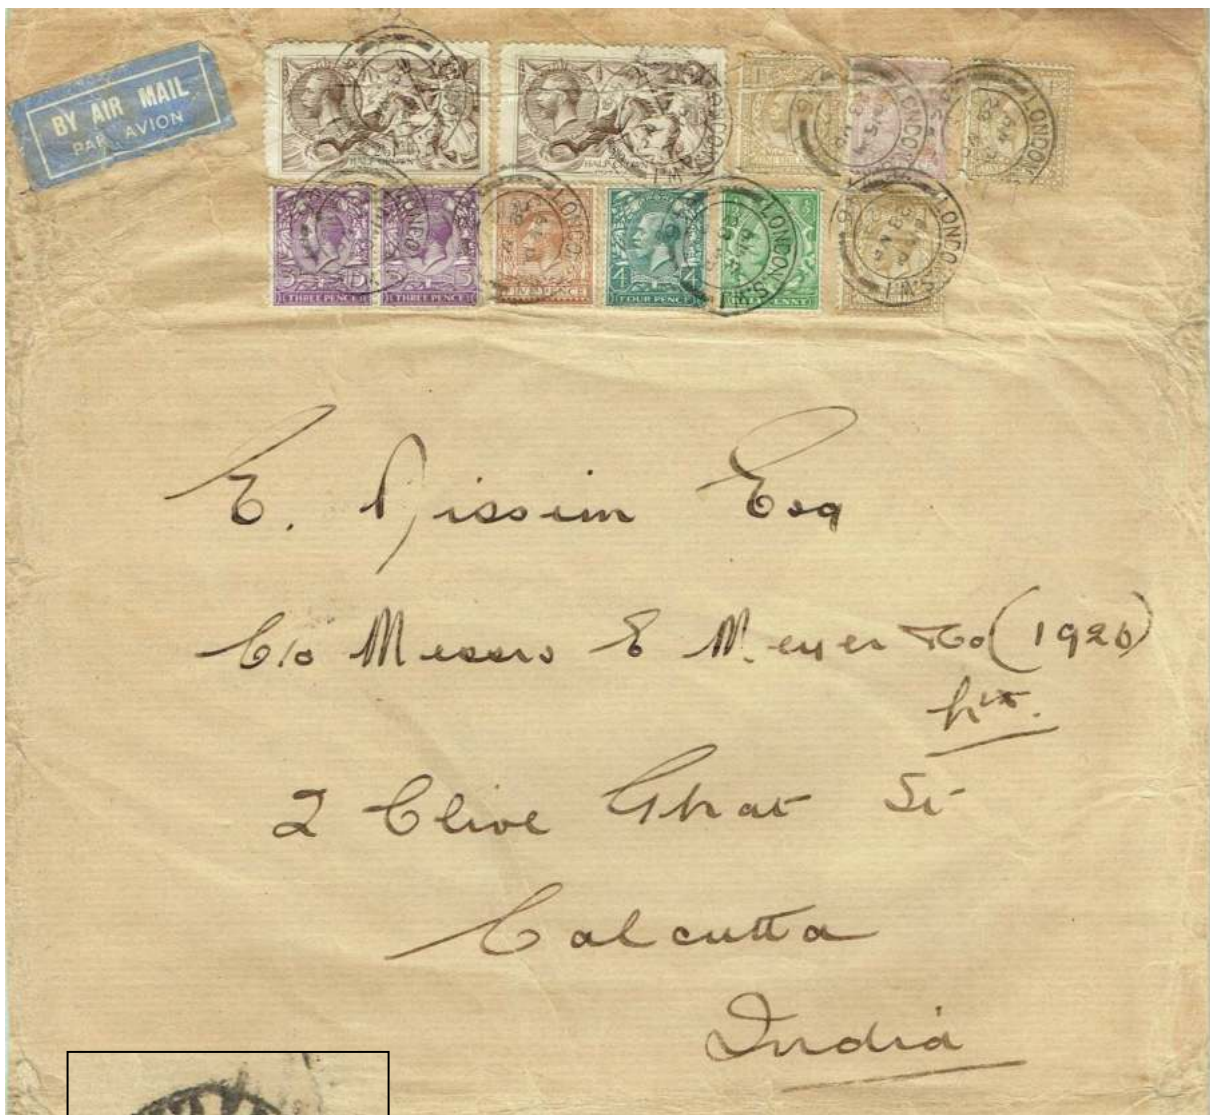 BY AIR MAIL
PAR AVION
HALF CROWN
HALF CROWN
LONDON. S.W.1
THREE PENCE
THREE PENCE
FOUR PENCE
HALFPENNY
LONDON. S.W.1
LONDON. S.W.1
E. Nissim Esq
C/o Messrs E Meyer & Co (1926)
Ltd.
2 Clive Ghat St
Calcutta
India